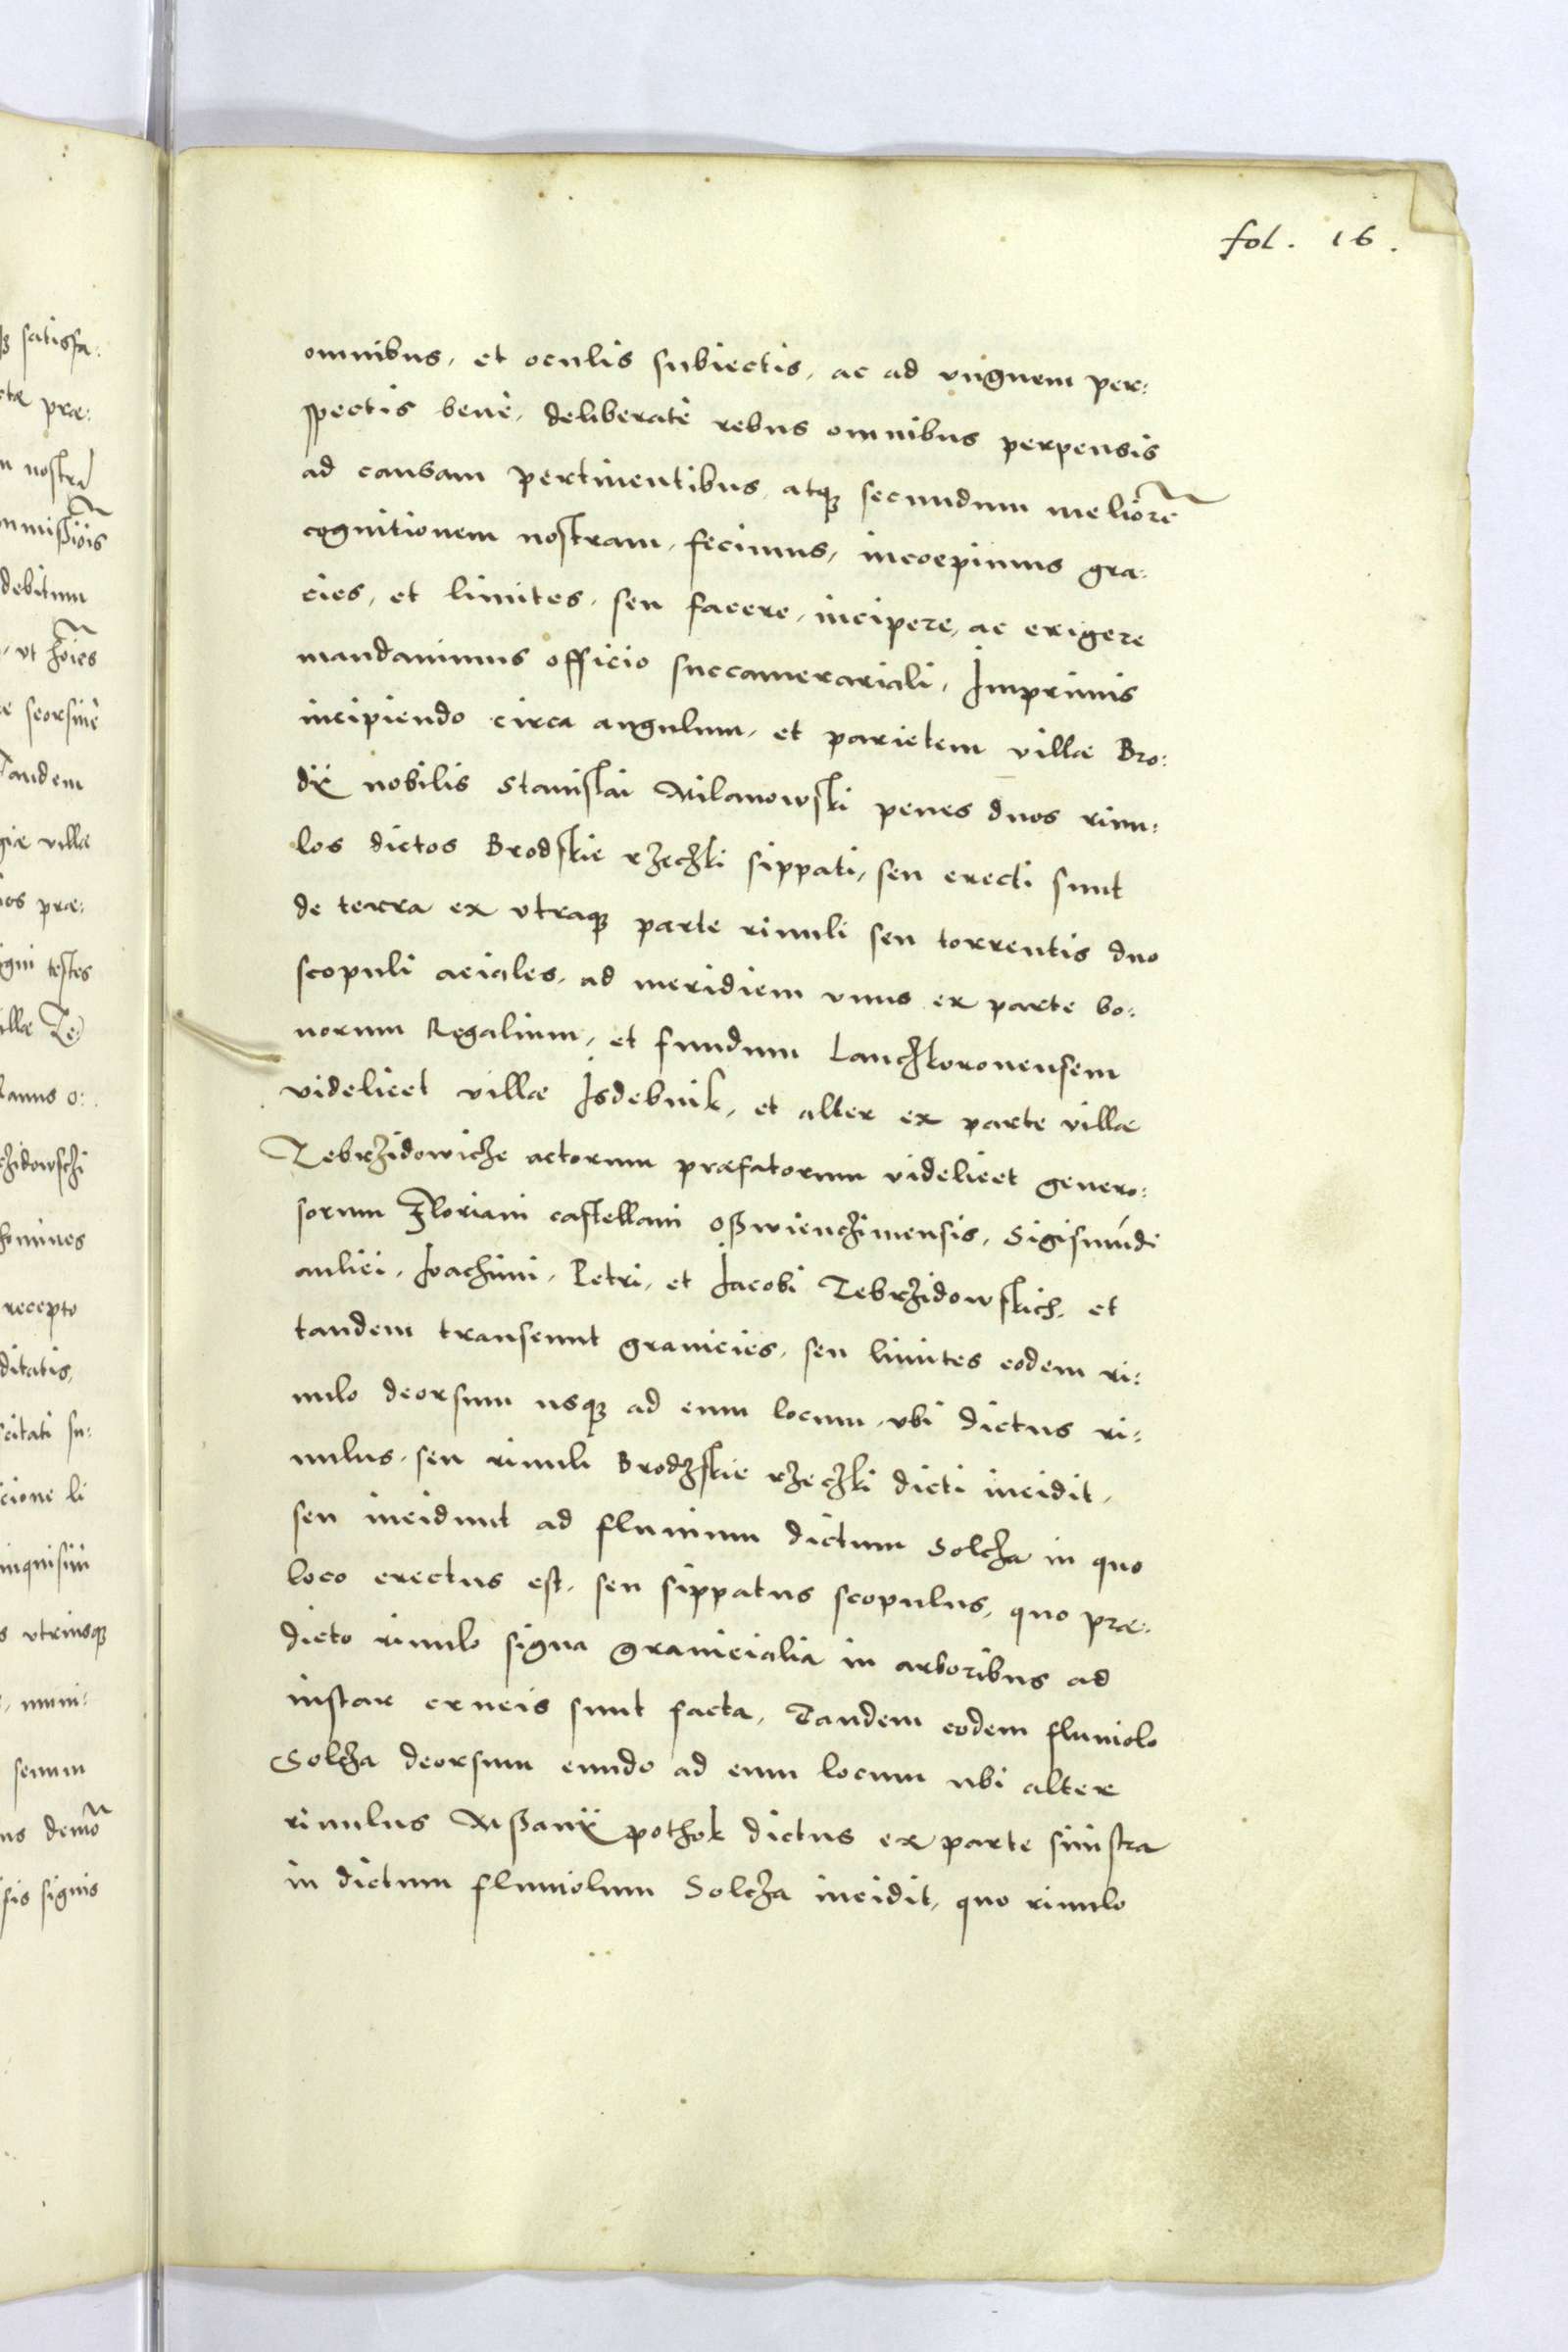 fol. 16.
omnibus, et oculis subiectis, ac ad vnguem per:
spectis benè, deliberatè rebus omnibus perpensis
ad causam pertinentibus, atq3 secundum meliorē
cognitionem nostram, fecimus, incoepimus gra:
cies, et limites, seu facere, incipere, ac erigere
mandauimus officio succamerariali, Imprimis
incipiendo circa angulum, et parietem villæ Bro:
dÿ nobilis Stanislai Milanowski penes duos riuu:
los dictos Brodskie rzeczki sippati, seu erecti sunt
de terra ex vtraq3 parte riuuli seu torrentis duo
scopuli aciales, ad meridiem vnus ex parte bo:
norum Regalium, et fundum Lanczkoronensem
videlicet villæ Isdebnik, et alter ex parte villæ
Zebrzidowicze actorum præfatorum videlicet genero:
sorum Floriani castellani Oßwienczimensis, Sigismúndi
aulici, Ioachimi, Petri, et Iacobi Zebrzidowskich, et
tandem transeunt granicies, seu limites eodem ri:
uulo deorsum usq3 ad eum locum, vbi dictus ri:
uulus, seu riuuli Brodzskie rzeczki dicti incidit,
seu incidunt ad fluuium dictum Solcza in quo
loco erectus est, seu sippatus scopulus, quo præ:
dicto riuulo signa granicialia in arboribus ad
instar crucis sunt facta, Tandem eodem fluuiolo
Solcza deorsum eundo ad eum locum ubi alter
riuulus Mßanÿ pothok dictus ex parte sinistra
in dictum fluuiolum Solcza incidit, quo riuulo
satisfa:
præ:
nostri
debitum
vt hoīes
seorsiuè
Tandem
villæ
præ:
testes
Ze
homines
recepto
ditatis,
citati su:
cione li
vtriusq3
signis